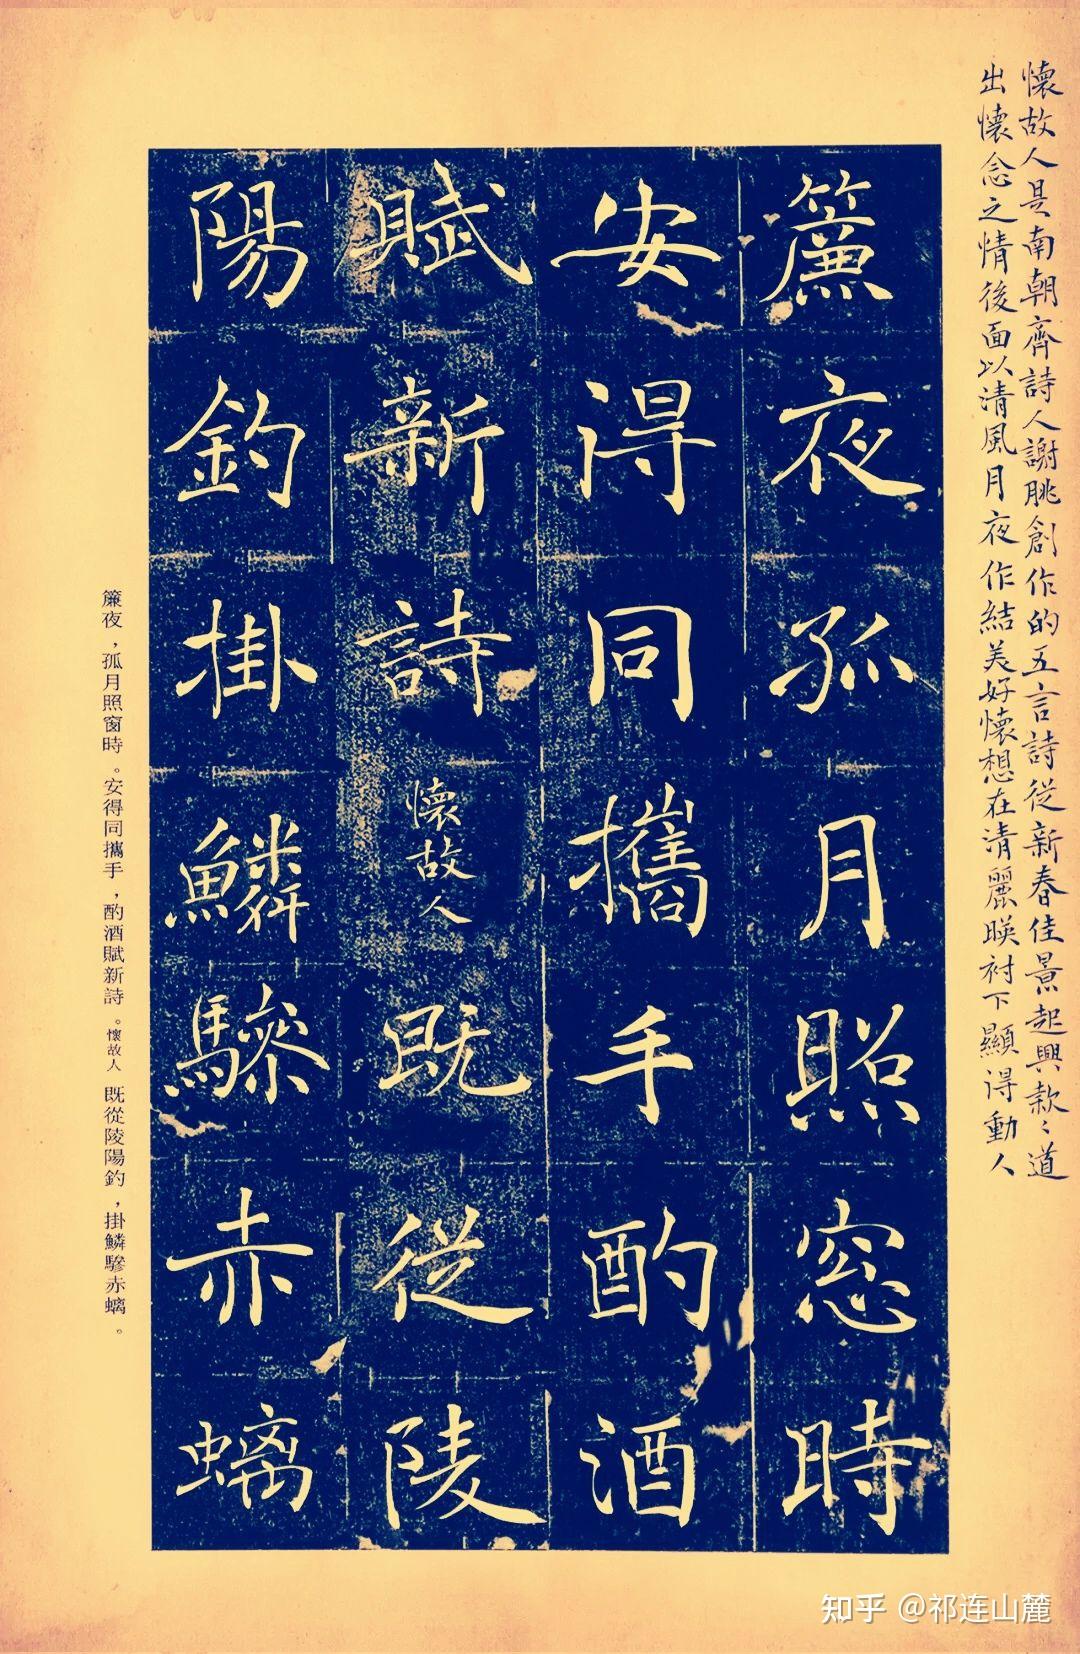 懷故人是南朝齊詩人謝朓創作的五言詩從新春佳景起興款〻道
出懷念之情後面以清風月夜作結美好懷想在清麗暎衬下顯得動人
簾夜孤月照窓時
安得同攜手酌酒
賦新詩懷故人既從陵
陽釣掛鱗驂赤螭
簾夜，孤月照窗時。安得同攜手，酌酒賦新詩。懷故人 既從陵陽釣，掛鱗驂赤螭。
知乎 @祁连山麓